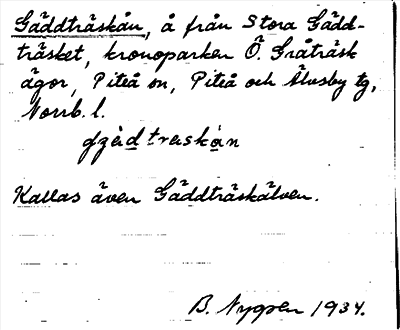 Gäddträskån, å från Stora Gädd-
träsket, kronoparken Ö. Gråträsk
ägor, Piteå sn, Piteå och Älvsby tg,
Norrb. l.
Kallas även Gäddträskälven.
B. Nygren 1934.